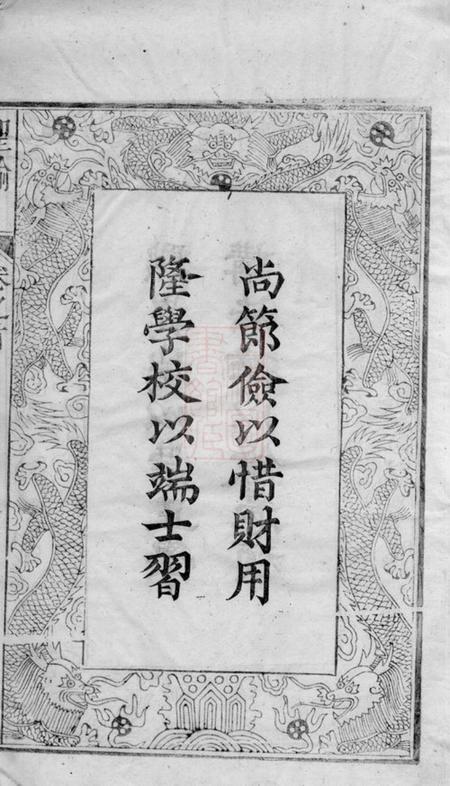 尚節儉以惜財用
隆學校以端士習